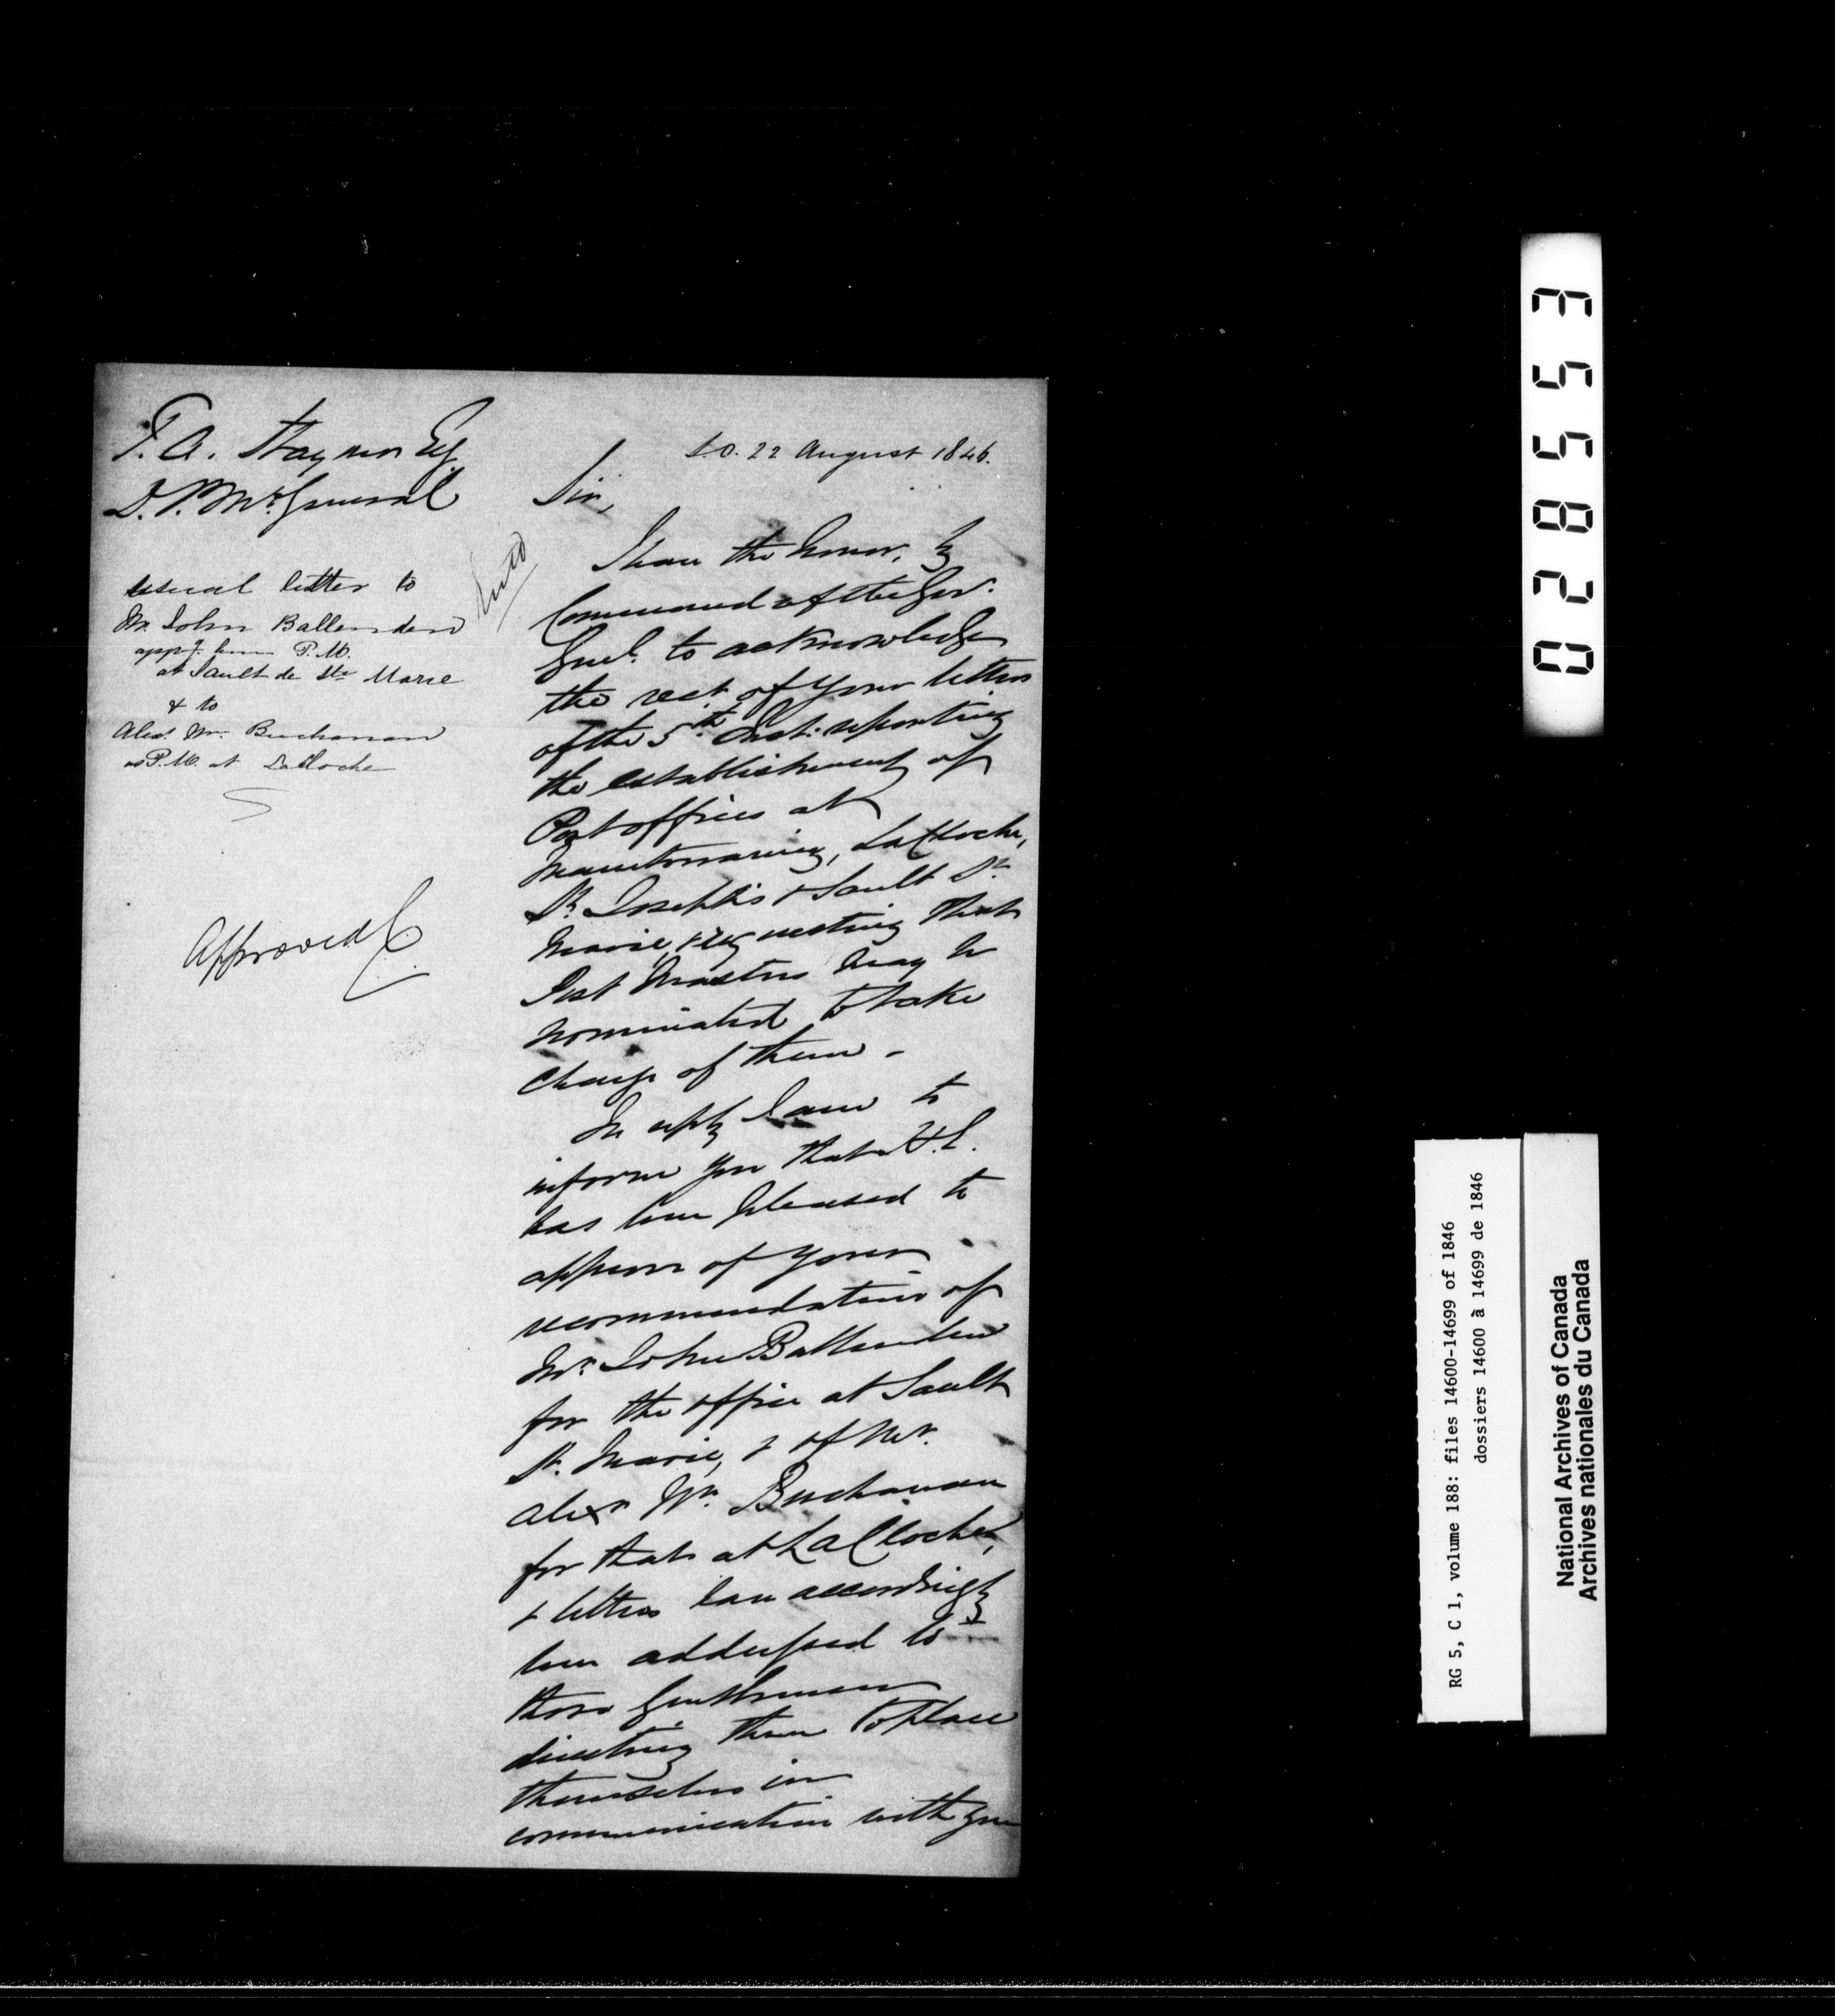 T. A. Stayner Esq
D. P. Mr. General
usual letter to
Mr. John Ballenden
appg. him P. M.
at Sault de Ste Marie
& to
Alexr. Wm. Buchanan
as P. M. at LaCloche
Approved
S.O. 22 August 1846.
Sir,
I have the honor, by
Command of the Govr.
Genl. to acknowledge
the rect. of your letter
of the 5th Inst: reporting
the establishment of
Post offices at
Manitowaning, LaCloche,
St. Joseph's & Sault St.
Marie, & requesting that
Post Masters may be
nominated to take
charge of them -
In reply I am to
inform you that H. E.
has been pleased to
approve of your
recommendation of
Mr. John Ballenden
for the office at Sault
St. Marie, & of Mr.
Alexr Wm. Buchanan
for that at LaCloche,
& letters have accordingly
been addressed to
those Gentlemen
directing them to place
themselves in
communication with you
028553
RG 5, C 1, volume 188: files 14600-14699 of 1846
dossiers 14600 à 14699 de 1846
National Archives of Canada
Archives nationales du Canada